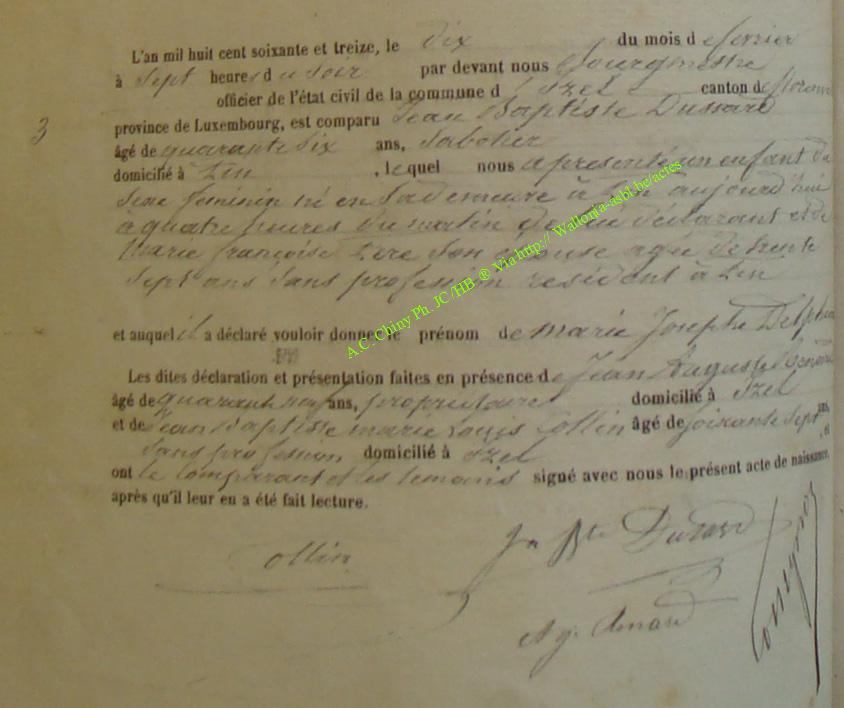 L'an mil huit cent soixante et treize, le dix du mois de fevrier
à sept heures du soir par devant nous Bourgmestre
officier de l'état civil de la commune d'Izel canton de Floren
3 province de Luxembourg, est comparu Jean Baptiste Dussard
âgé de quarante six ans, Sabotier
domicilié à , lequel nous a presenté un enfant du
sexe feminin né en sa demeure à aujourd'hui
à quatre heures du matin de lui déclarant et de
Marie françoise son épouse agée de trente
sept ans sans profession résident à
et auquel il a déclaré vouloir donner le prénom de Marie Josephe Delphine
Les dites déclaration et présentation faites en présence de Jean Auguste
âgé de quarante neuf ans, propriétaire domicilié à Izel
et de Jean Baptiste Marie Louis Ollin âgé de soixante sept ans,
sans profession domicilié à Izel , et
ont le comparant et les temoins signé avec nous le présent acte de naissance
après qu'il leur en a été fait lecture.
Jn Bte Dussard
Ollin
A.C. Chiny Ph. JC /HB ® Via http:// Wallonia-asbl.be/actes